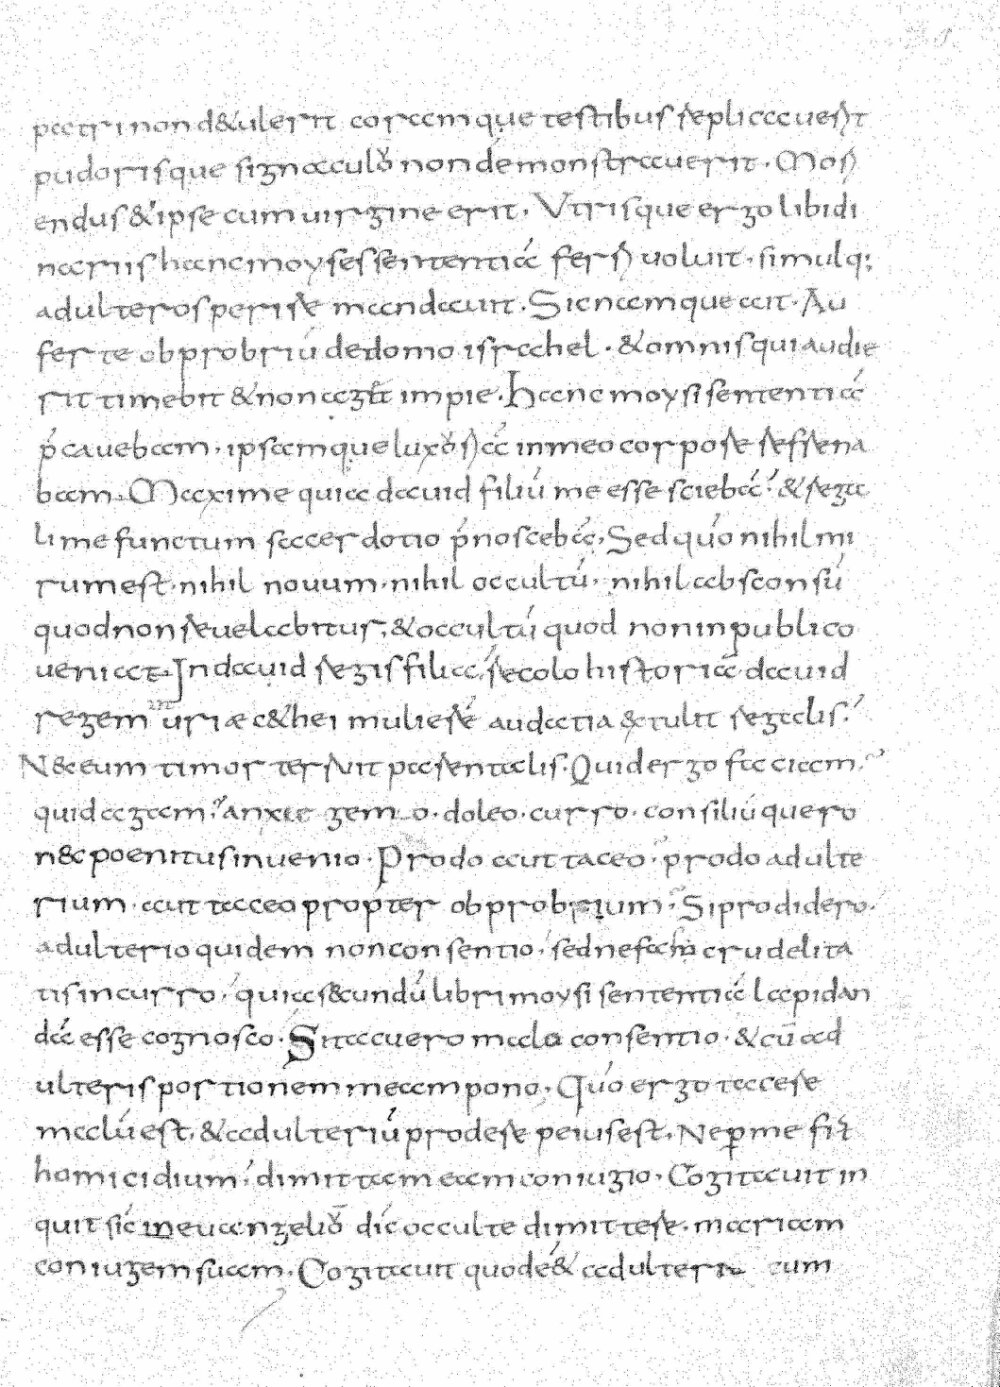 patri non d&ulerit coramque testibus replicauerit
pudorisque signaculũ non demonstrauerit. Mori
endus & ipse cum uirgine erit. Vtrisque ergo libidi
nariis hanc moyses sententiã ferri uoluit. simulq;
adulteros perire mandauit. Sic namque ait. Au
ferte obprobriũ de domo israhel. & omnis qui audie
rit timebit & non ag& impie. Hanc moysi sententiã
p̃cauebam. ipsamque luxoriã in meo corpore refrena
bam. Maxime quia dauid filiũ me esse sciebã. & rega
li me functum sacerdotio p̃noscebã. Sed quo nihil mi
rum est. nihil nouum. nihil occultũ. nihil absconsũ
quod non reuelabitur, & occultũ quod non in publico
ueniat. In dauid regis filia, recolo historiã dauid
regem uriæ c&hei muliere audatia &tulit regalis.
N& eum timor terruit parentalis. Quid ergo faciam.
quid agam. anxie gemo. doleo. curro. consiliũ quero
n& poenitus inuenio. Prodo aut taceo. prodo adulte
rium. aut taceo propter obprobrium. Si prodidero.
adulterio quidem non consentio, sed nefariã crudelita
tis incurro, quia s&undũ libri moysi sententiã lapidan
dã esse cognosco. Si tacuero malo consentio. & cũ ad
ulteris portionem meam pono. Quo ergo tacere
malũ est, & adulteriũ prodere peius est. Ne per me fiat
homicidium, dimittam eam coniugio. Cogitauit in
quit sic in euangeliũ dic occulte dimittere. mariam
coniugem suam. Cogitauit quod e& adulterii cum